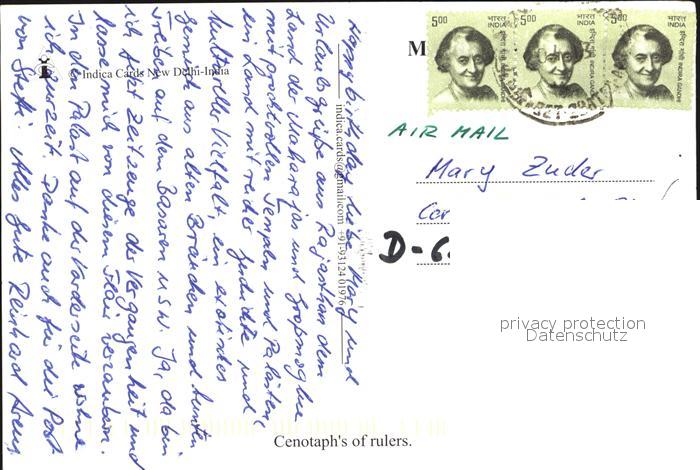 5.00 भारत INDIA इन्दिरा गांधी INDIRA GANDHI
5.00 भारत INDIA इन्दिरा गांधी INDIRA GANDHI
5.00 भारत INDIA इन्दिरा गांधी INDIRA GANDHI
M
AIR MAIL
Mary Zuder
D-6
privacy protection
Datenschutz
© Indica Cards New Delhi-India
indica.cards@gmail.com +91-93124 01976
Cenotaph's of rulers.
Happy birthday liebe Mary und
Urlaubsgrüße aus Rajasthan dem
Land der Maharajas und Großmoghule
mit prachtvollen Tempeln und Palästen,
ein Land mit reicher Geschichte und
kultureller Vielfalt, ein exotisches
Gemisch aus alten Bräuchen und buntem
Treiben auf den Basaren usw. Ja, da bin
ich jetzt Zeitzeuge der Vergangenheit und
lasse mich von diesem Flair verzaubern.
In dem Palast auf der Vorderseite wohne
ich zurzeit. Danke auch für die Post
von Steffi. Alles Gute Reinhard